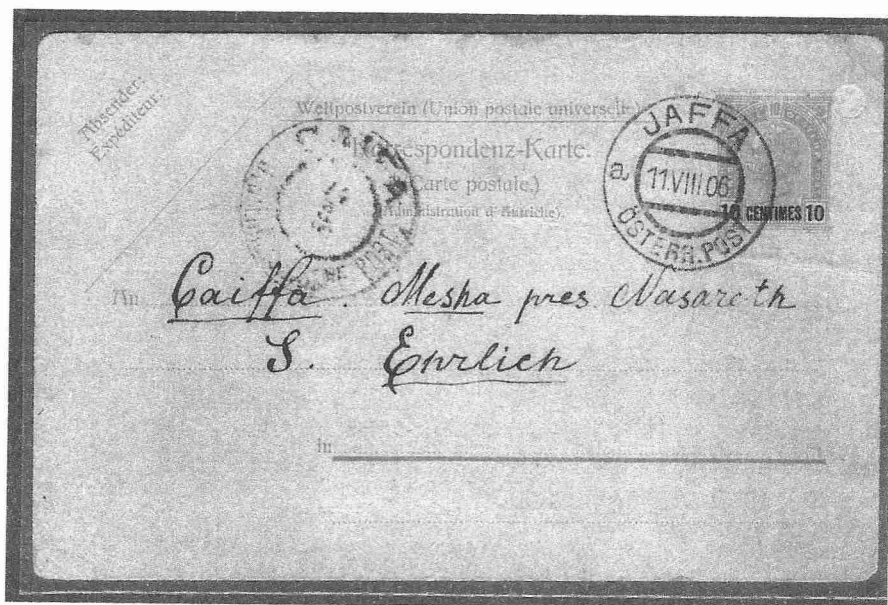 Absender:
Expéditeur:
Weltpostverein (Union postale universelle)
Korrespondenz-Karte.
(Carte postale.)
(Administration d'Autriche).
CAIFA
JAFFA
a
11.VIII.06
ÖSTERR. POST
10 CENTIMES 10
An Caiffa. Mesha pres Nasareth
S. Ehrlich
in